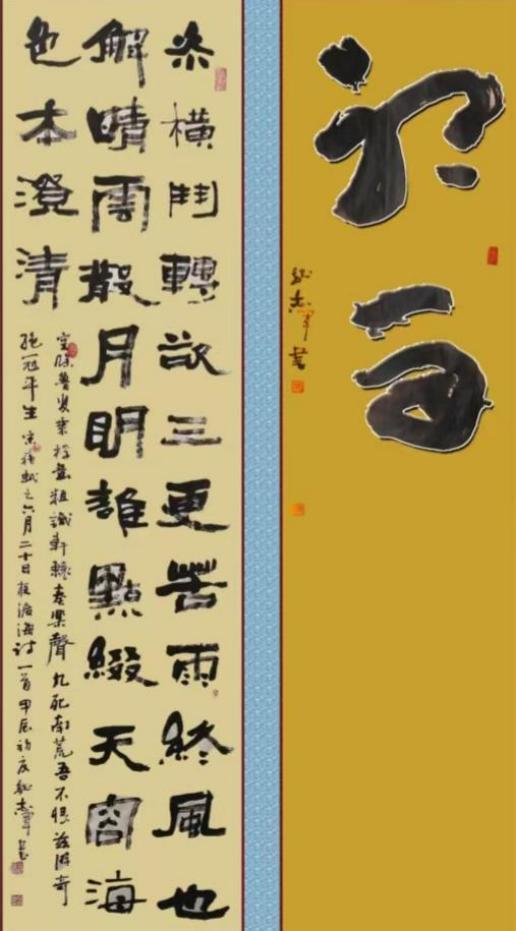 参橫鬥轉欲三更苦雨終風也
解晴雲散月明誰點綴天容海
色本澄清
空餘魯叟乘桴意粗識軒轅奏樂聲九死南荒吾不恨茲遊奇
絕冠平生 宋蘇軾之六月二十日夜渡海诗一首 甲辰初夏 志軍書
志軍書